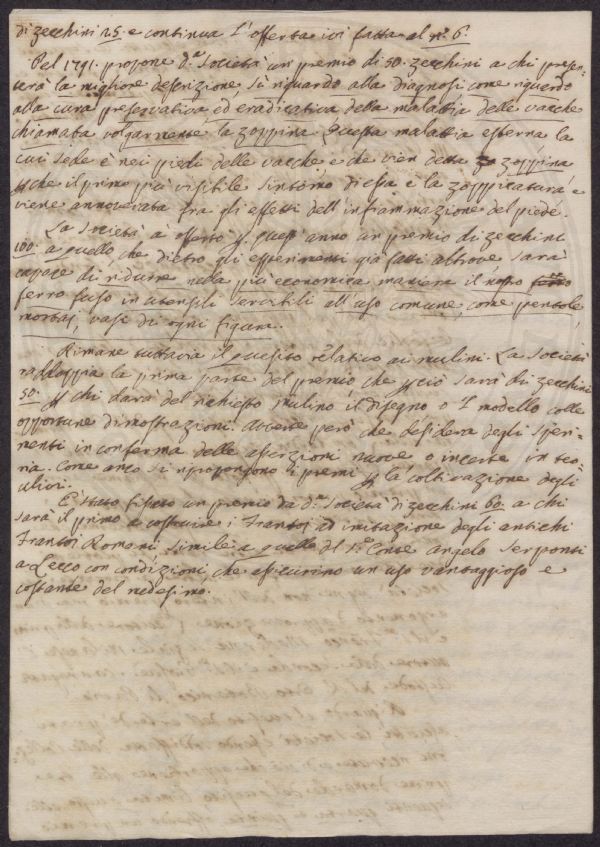 di zecchini 25. e continua l'offerta ivi fatta al n.º 6.
Pel 1791. propone d.ª Società un premio di 50. zecchini a chi presen-
terà la migliore descrizione sì riguardo alla diagnosi come riguardo
alla cura preservativa, ed eradicativa della malattia delle vacche
chiamata volgarmente la zoppina. Questa malattia esterna la
cui sede è nei piedi delle vacche e che vien detta zoppina
che il primo più visibile sintomo di essa è la zoppicatura e
viene annoverata fra gli effetti dell'infiammazione del piede.
La Società a offerto quest'anno un premio di zecchini
100. a quello, che dietro gli esperimenti già fatti altrove sarà
capace di ridurre nella più economica maniera il nostro
ferro fuso in utensili servibili all'uso comune, come pentole,
mortaj, vasi di ogni figura.
Rimane tuttavia il quesito relativo ai mulini. La Società
raddoppia la prima parte del premio che perciò sarà di zecchini
50. per chi darà del richiesto mulino il disegno o l modello colle
opportune dimostrazioni. Avverte però che desidera degli speri-
menti in conferma delle asserzioni nuove o incerte in teo-
ria. Come anco si ripropongono i premi per la coltivazione degli
ulivi.
È stato fissato un premio da d.ª Società di zecchini 60. a chi
sarà il primo a costruire i Frantoj ad imitazione degli antichi
Frantoi Romani, simile a quello del S.r Conte Angelo Serponti
a Lecco con condizioni, che assicurino un uso vantaggioso e
costante del medesimo.